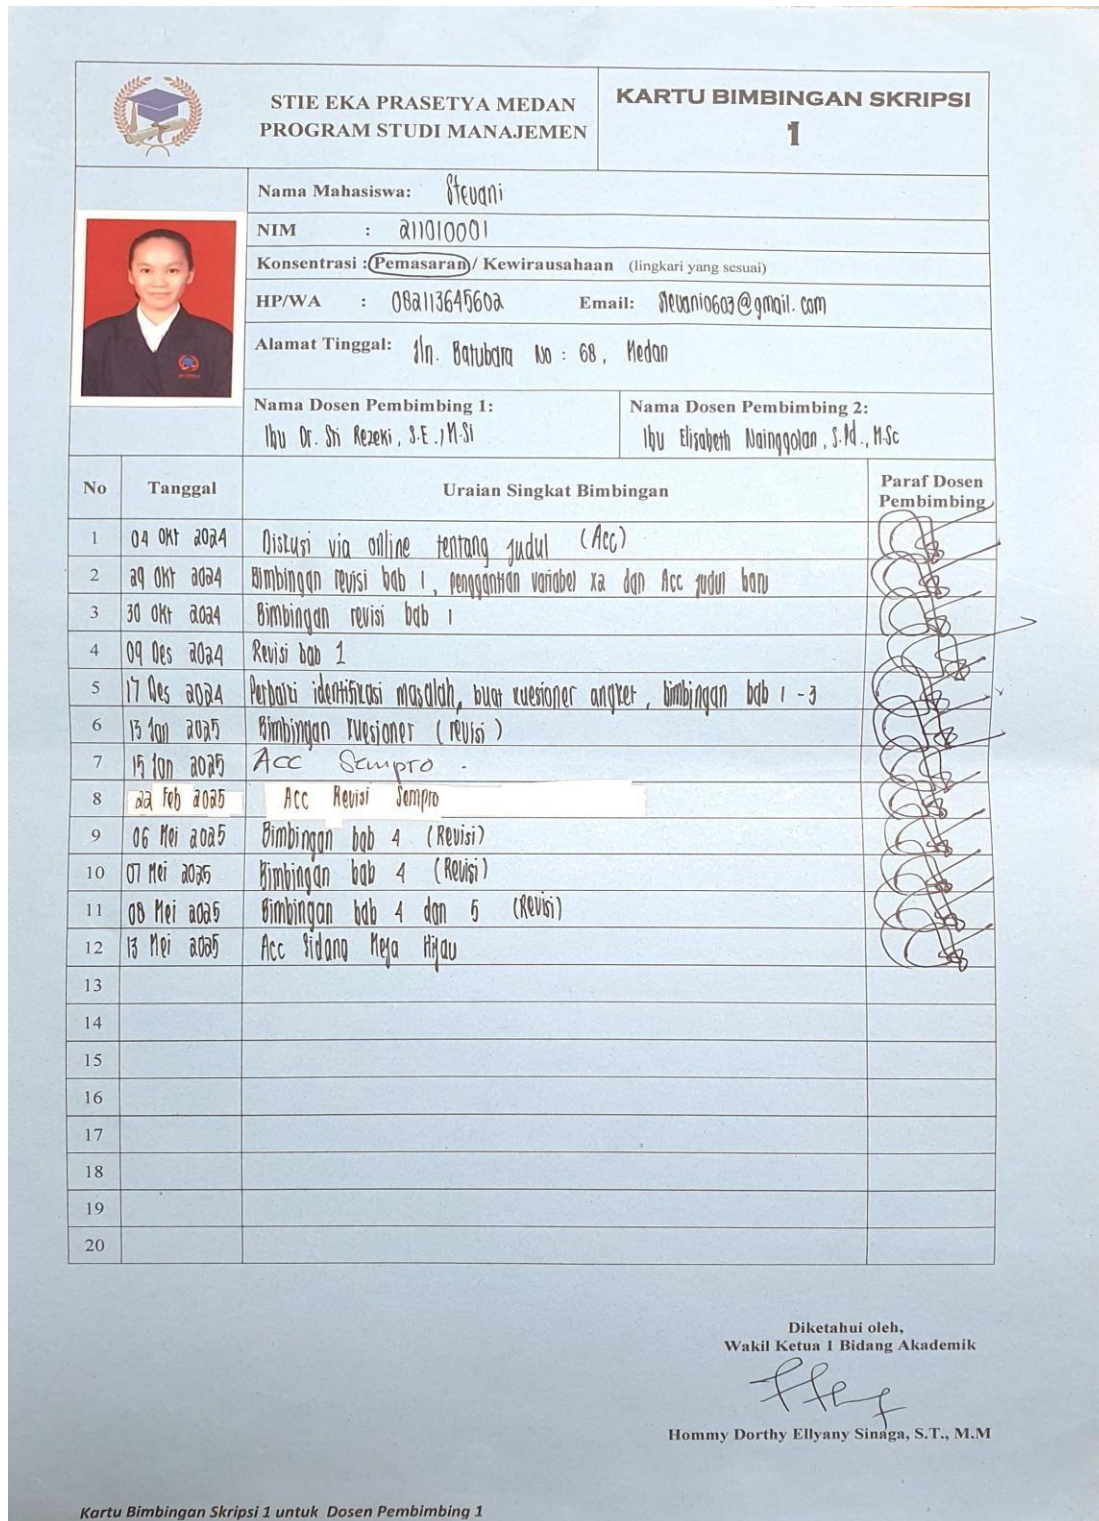 STIE EKA PRASETYA MEDAN
PROGRAM STUDI MANAJEMEN
KARTU BIMBINGAN SKRIPSI
1
Nama Mahasiswa: Stevani
NIM : 211010001
Konsentrasi : Pemasaran / Kewirausahaan (lingkari yang sesuai)
HP/WA : 082113645602 Email: stevani0603@gmail.com
Alamat Tinggal: Jln. Batubara No : 68, Medan
Nama Dosen Pembimbing 1:
Ibu Dr. Sri Rezeki, S.E., M.Si
Nama Dosen Pembimbing 2:
Ibu Elisabeth Nainggolan, S.Pd., M.Sc
No Tanggal Uraian Singkat Bimbingan Paraf Dosen Pembimbing
1 04 Okt 2024 Diskusi via online tentang judul (Acc)
2 29 Okt 2024 Bimbingan revisi bab 1, penggantian variabel x2 dan Acc judul baru
3 30 Okt 2024 Bimbingan revisi bab 1
4 09 Des 2024 Revisi bab 1
5 17 Des 2024 Perbaiki identifikasi masalah, buat kuesioner angket, bimbingan bab 1-3
6 13 Jan 2025 Bimbingan kuesioner (revisi)
7 15 Jan 2025 ACC Sempro.
8 22 Feb 2025 Acc Revisi Sempro
9 06 Mei 2025 Bimbingan bab 4 (Revisi)
10 07 Mei 2025 Bimbingan bab 4 (Revisi)
11 08 Mei 2025 Bimbingan bab 4 dan 5 (Revisi)
12 13 Mei 2025 Acc Sidang Meja Hijau
13
14
15
16
17
18
19
20
Diketahui oleh,
Wakil Ketua 1 Bidang Akademik
Hommy Dorthy Ellyany Sinaga, S.T., M.M
Kartu Bimbingan Skripsi 1 untuk Dosen Pembimbing 1